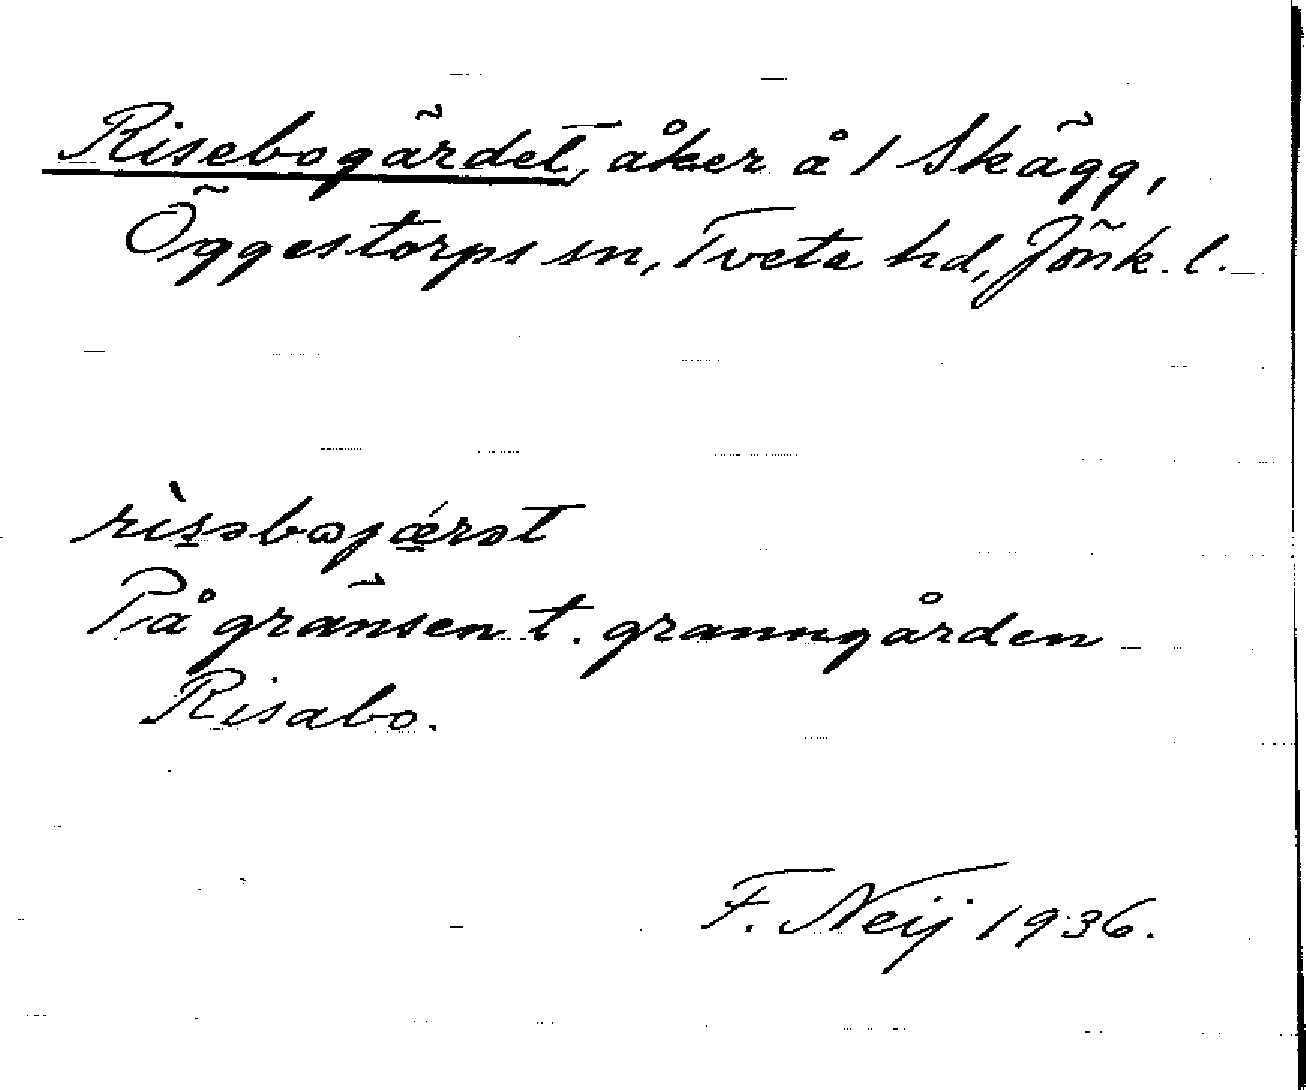 Risebogärdet, åker å 1 Skägg,
Öggestorps sn, Tveta hd, Jönk. l.
rìsəbojǽrət
På gränsen t. granngården
Risabo.
F. Neij 1936.